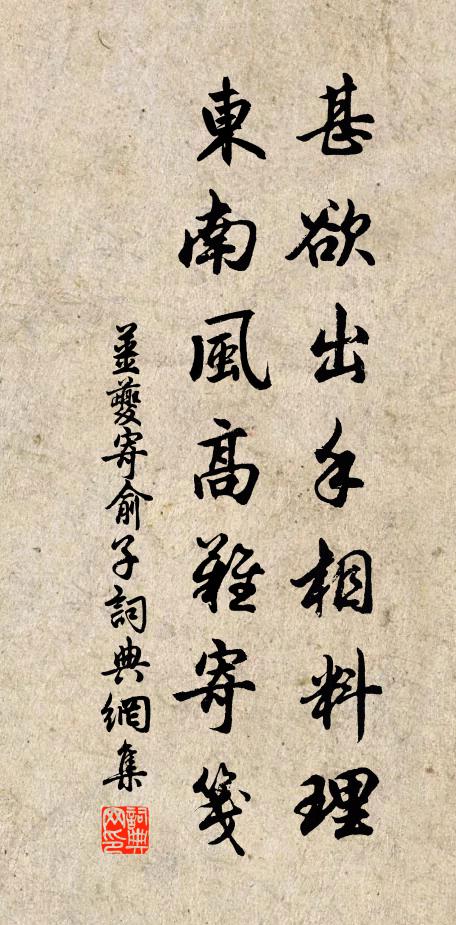 甚欲出手相料理
東南風高難寄箋
姜夔寄俞子詞典網集
詞典網印